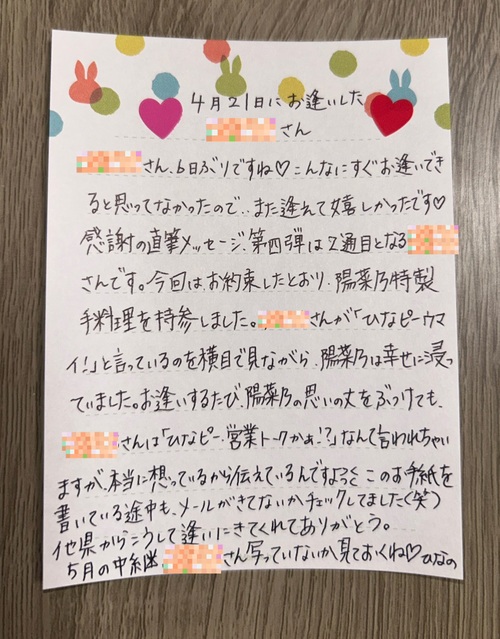 4月21日にお逢いした
さん
さん、6日ぶりですね♡こんなにすぐお逢いでき
ると思ってなかったので、また逢えて嬉しかったです♡
感謝の直筆メッセージ、第四弾は2通目となる
さんです。今回は、お約束したとおり、陽菜乃特製
手料理を持参しました。さんが「ひなピーウマ
イ!」と言っているのを横目で見ながら、陽菜乃は幸せに浸っ
ていました。お逢いするたび、陽菜乃の思いの丈をぶつけても、
さんは「ひなピー、営業トークかぁ!?」なんて言われちゃい
ますが、本当に想っているから伝えているんですよっ このお手紙を
書いている途中も、メールがきてないかチェックしてました(笑)
他県からこうして逢いにきてくれてありがとう。
5月の中継さん写っていないか見ておくね♡ひなの